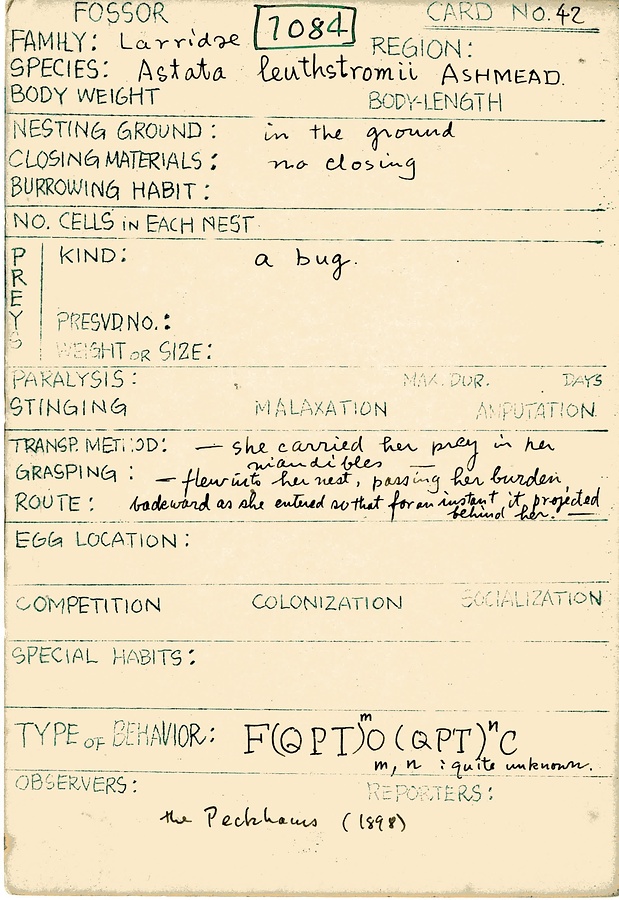 FOSSOR 7084 CARD No. 42
FAMILY: Larridae REGION:
SPECIES: Astata leuthstromii ASHMEAD.
BODY WEIGHT BODY-LENGTH
NESTING GROUND: in the ground
CLOSING MATERIALS: no closing
BURROWING HABIT:
NO. CELLS in EACH NEST
PREYS
KIND: a bug.
PRESVD NO.:
WEIGHT OR SIZE:
PARALYSIS: MAX. DUR. DAYS
STINGING MALAXATION AMPUTATION
TRANSP. METHOD: — she carried her prey in her
mandibles —
GRASPING: — flew into her nest, passing her burden
ROUTE: backward as she entered so that for an instant it projected
behind her. —
EGG LOCATION:
COMPETITION COLONIZATION SOCIALIZATION
SPECIAL HABITS:
TYPE OF BEHAVIOR: F(QPT)ᵐO(QPT)ⁿC
m, n : quite unknown.
OBSERVERS: REPORTERS:
the Peckhams (1898)